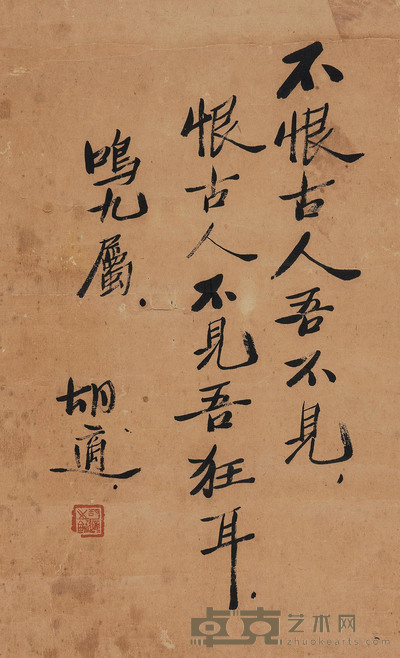 不恨古人吾不見，
恨古人不見吾狂耳．
鳴九屬．
胡適．
卓克艺术网
www.zhuokearts.com